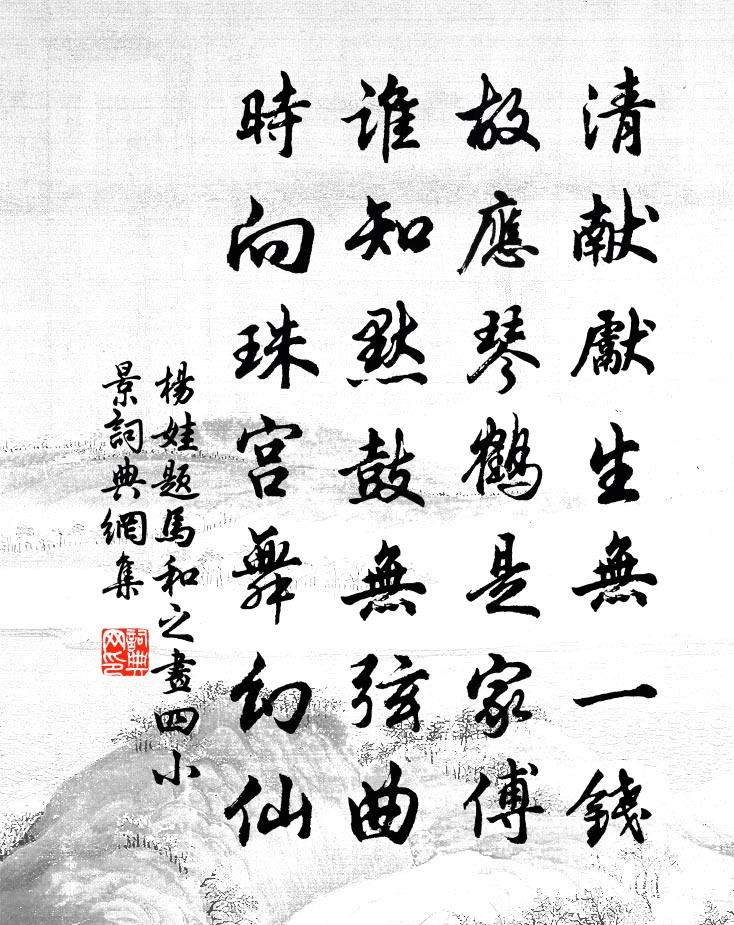 清献獻生無一錢
故應琴鶴是家傅
誰知默鼓無弦曲
時向珠宮舞幻仙
楊娃題馬和之畫四小
景詞典網集
詞典网印